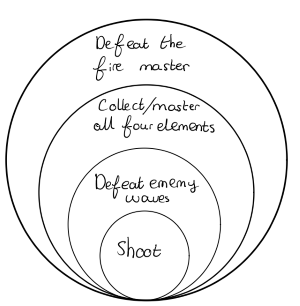 Defeat the
fire master
Collect/master
all four elements
Defeat enemy
waves
Shoot